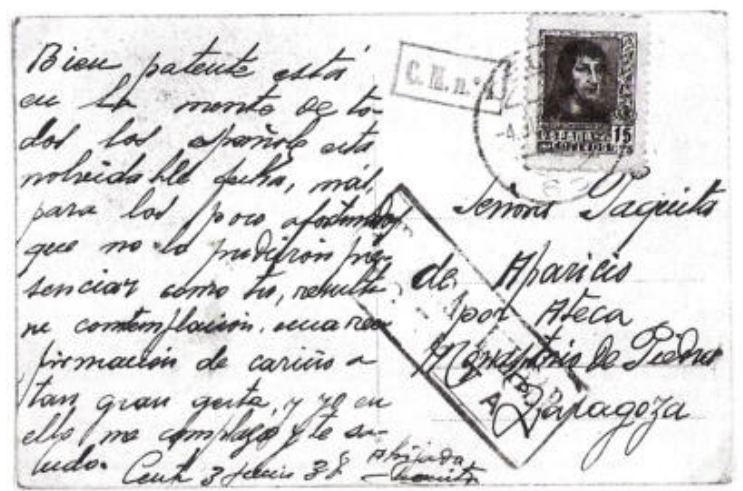 Bien patente está
en la mente de to-
dos los españoles esta
inolvidable fecha, más,
para los poco afortunados
que no la pudieron pre-
senciar como tu, resulta
su contemplación, una rea
firmación de cariño a
tan gran gesta, y yo en
ello me complazco y te sa-
ludo.
Ceuta 3 Junio 38
Ahijada
C. M. n.º
ESPAÑA
CORREOS 15
Señora Paquita
de Aparicio
por Ateca
Monasterio de Piedra
Zaragoza